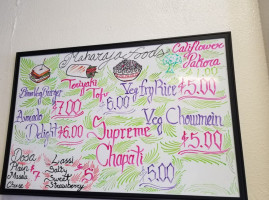 Maharaja Foods
Califlower
Pakora
$7.00
Teriyaki
Tofu
6.00
Veg fry Rice $5.00
Avocado
Delight $6.00
Veg Chowmein
$5.00
Supreme
Chapati
$5.00
Dosa
Plain
Masala
Cheese
$7
Lassi
Salty
Sweet
Strawberry
$5